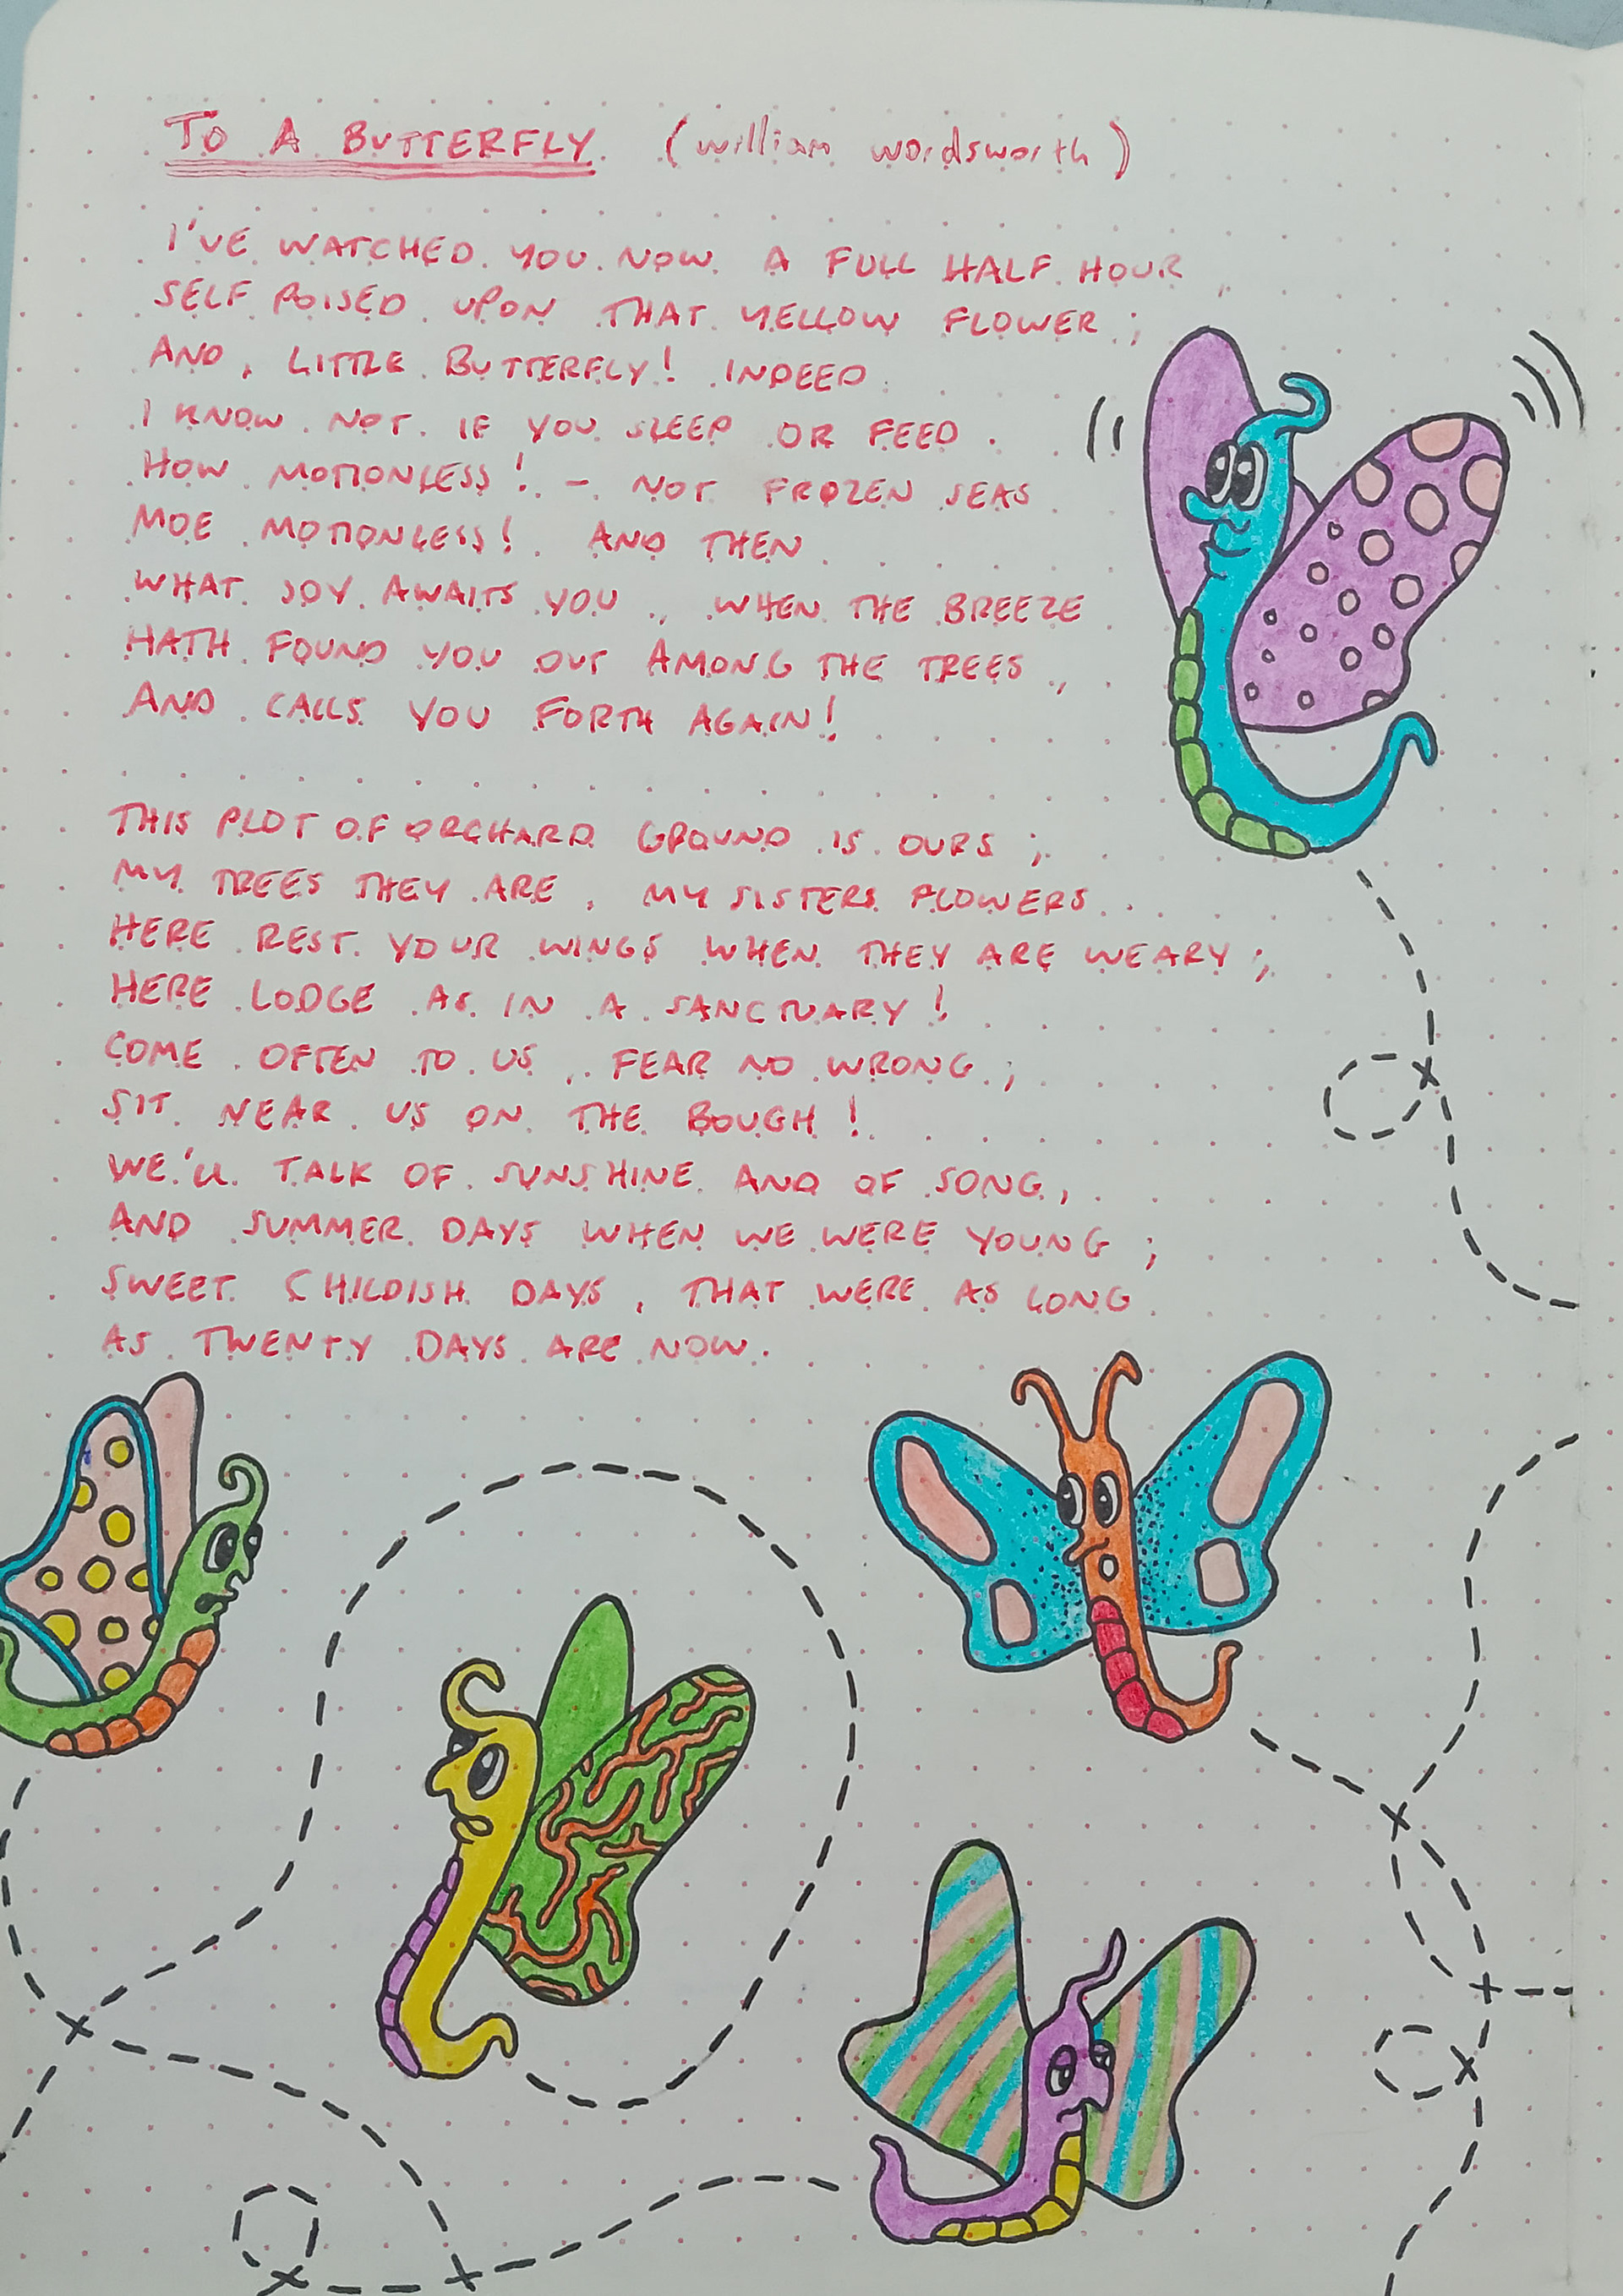 TO A BUTTERFLY (william wordsworth)
I'VE WATCHED YOU NOW A FULL HALF HOUR,
SELF POISED UPON THAT YELLOW FLOWER;
AND, LITTLE BUTTERFLY! INDEED
I KNOW NOT IF YOU SLEEP OR FEED.
HOW MOTIONLESS! - NOT FROZEN SEAS
MOE MOTIONLESS! AND THEN
WHAT JOY AWAITS YOU, WHEN THE BREEZE
HATH FOUND YOU OUT AMONG THE TREES,
AND CALLS YOU FORTH AGAIN!
THIS PLOT OF ORCHARD GROUND IS OURS;
MY TREES THEY ARE, MY SISTERS FLOWERS.
HERE REST YOUR WINGS WHEN THEY ARE WEARY;
HERE LODGE AS IN A SANCTUARY!
COME OFTEN TO US, FEAR NO WRONG;
SIT NEAR US ON THE BOUGH!
WE'LL TALK OF SUNSHINE AND OF SONG,
AND SUMMER DAYS WHEN WE WERE YOUNG;
SWEET CHILDISH DAYS, THAT WERE AS LONG
AS TWENTY DAYS ARE NOW.